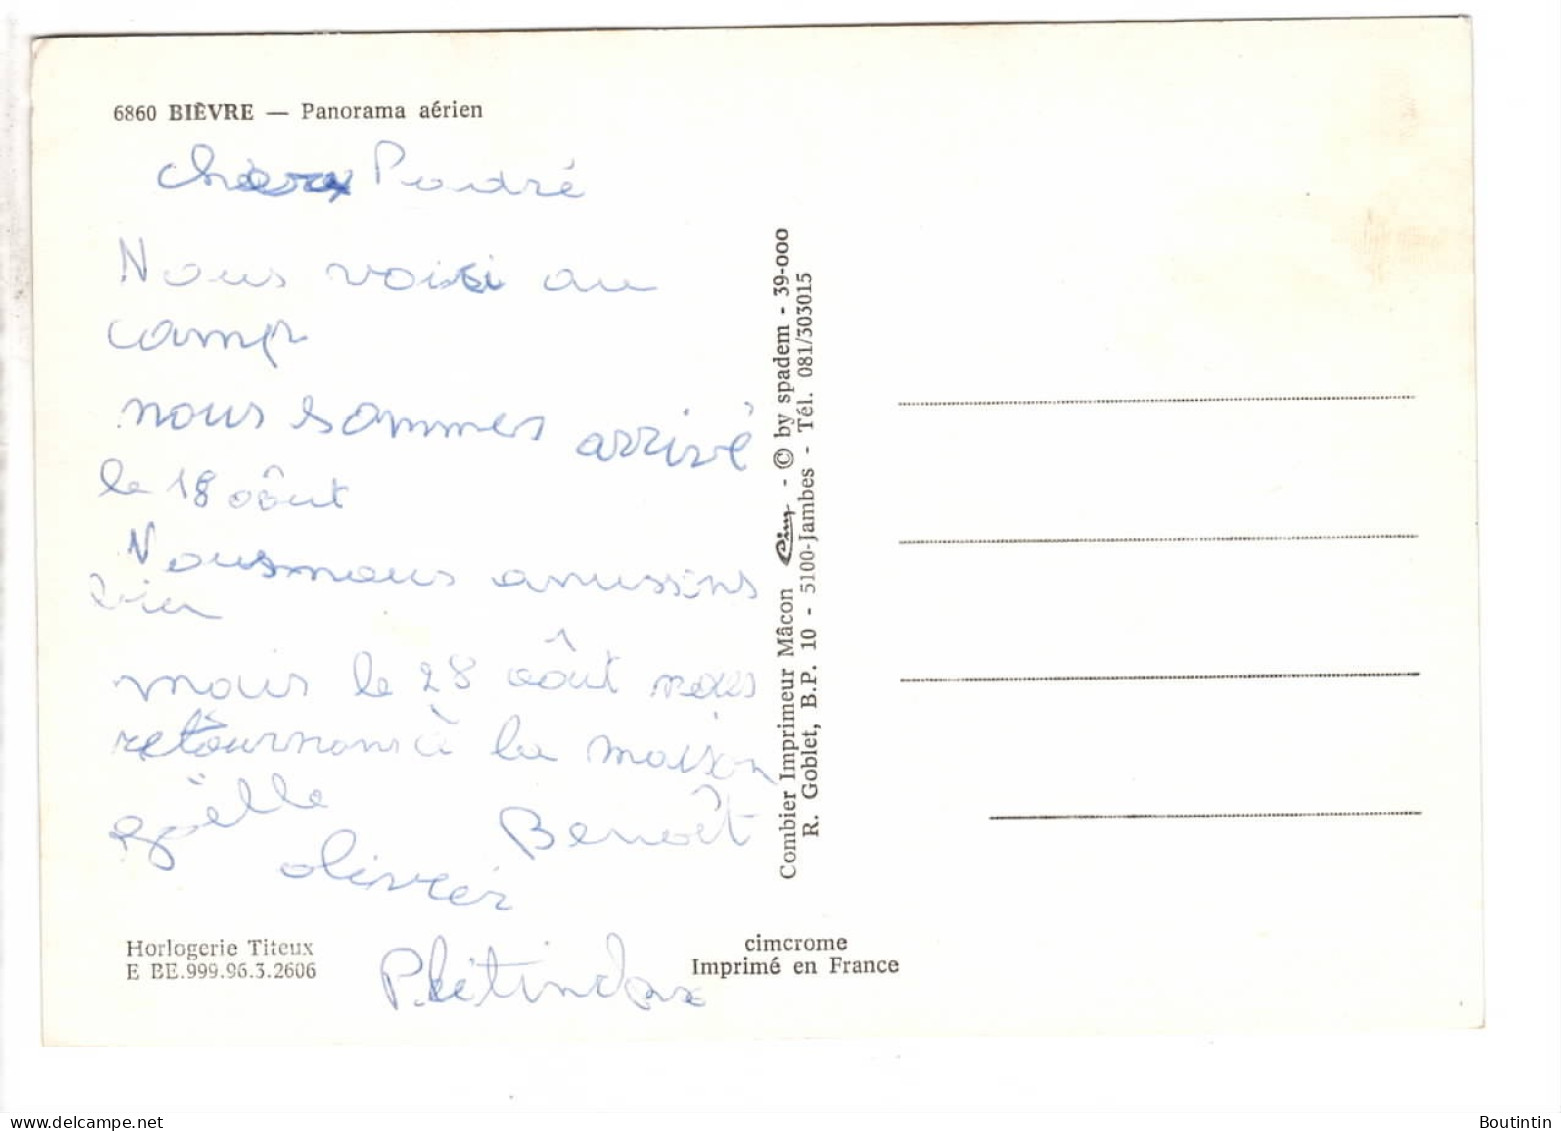 6860 BIÈVRE — Panorama aérien
Nous voisi au
camp
nous sommes arrivé
le 18 aôut
Nous nous amussins
bien
mais le 28 aôut nous
retournons à la maison
gaëlle
Benoît
olivier
Horlogerie Titeux
E BE.999.96.3.2606
cimcrome
Imprimé en France
Combier Imprimeur Mâcon Cim - © by spadem - 39-000
R. Goblet, B.P. 10 - 5100-Jambes - Tél. 081/303015
delcampe.net
Boutintin